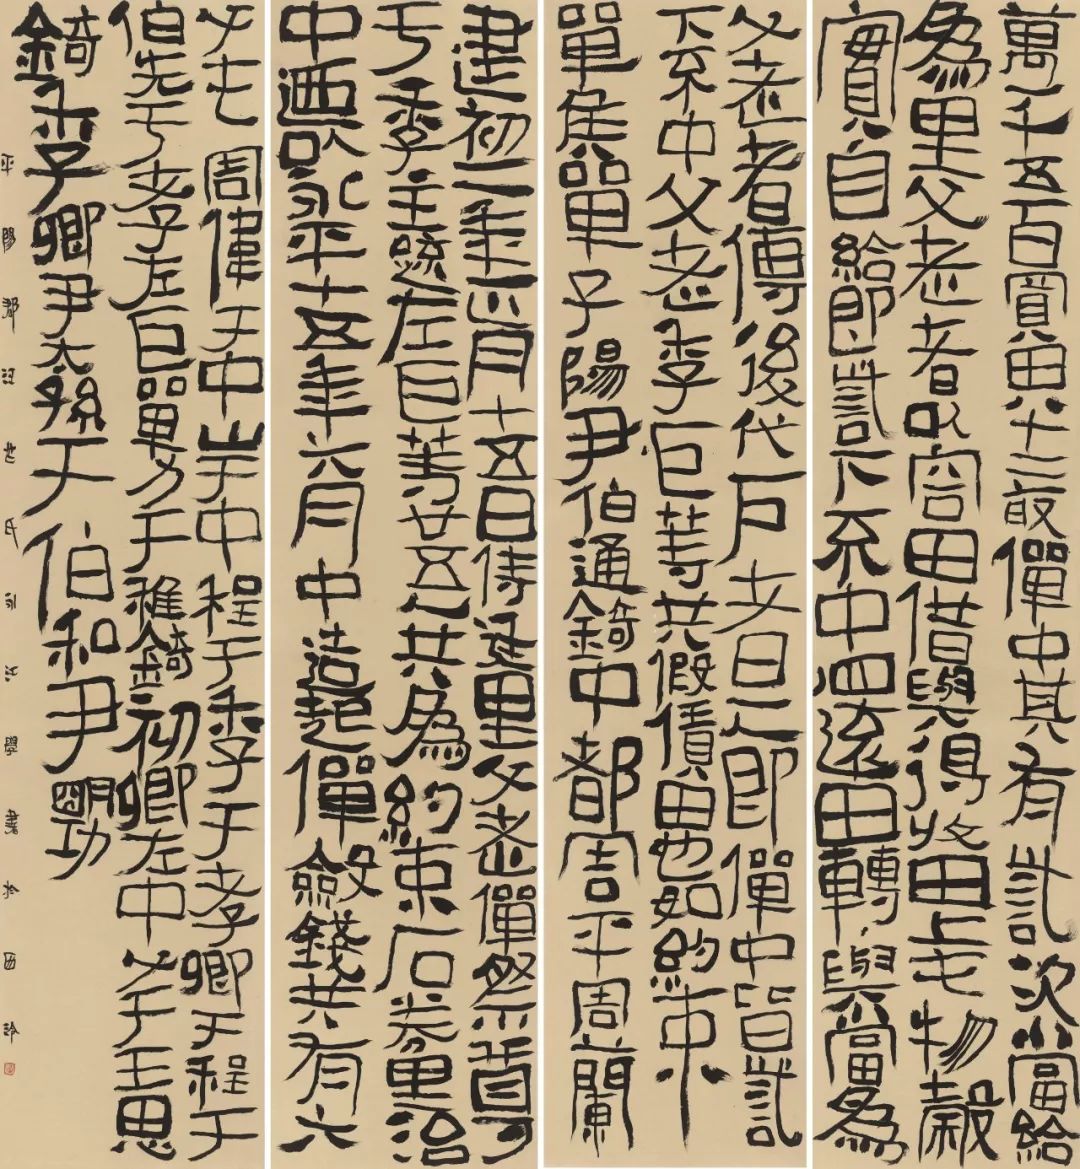 建初二年正月十五日侍廷里父老僤祭尊
于季主疏左巨等廿五人共為約束石券里治
中迺以永平十五年六月中造起僤斂錢共有六
萬千五百買田八十二畝僤中其有訾次當給
為里父老者以容田借與得收田上毛物穀
實自給即訾下不中還田轉與當為
父老者傳後代戶者如是即僤中皆訾
下不中父老季巨等共假賃田也如約束
單侯單子陽尹伯通錡中都周平周蘭
父老周偉于中山于中程于季于孝卿于程于
伯先于孝左巨單力于稚錡初卿左中文于王思
錡季卿尹太孫于伯和尹明功
平陽郡汪芒氏永江學書於西泠